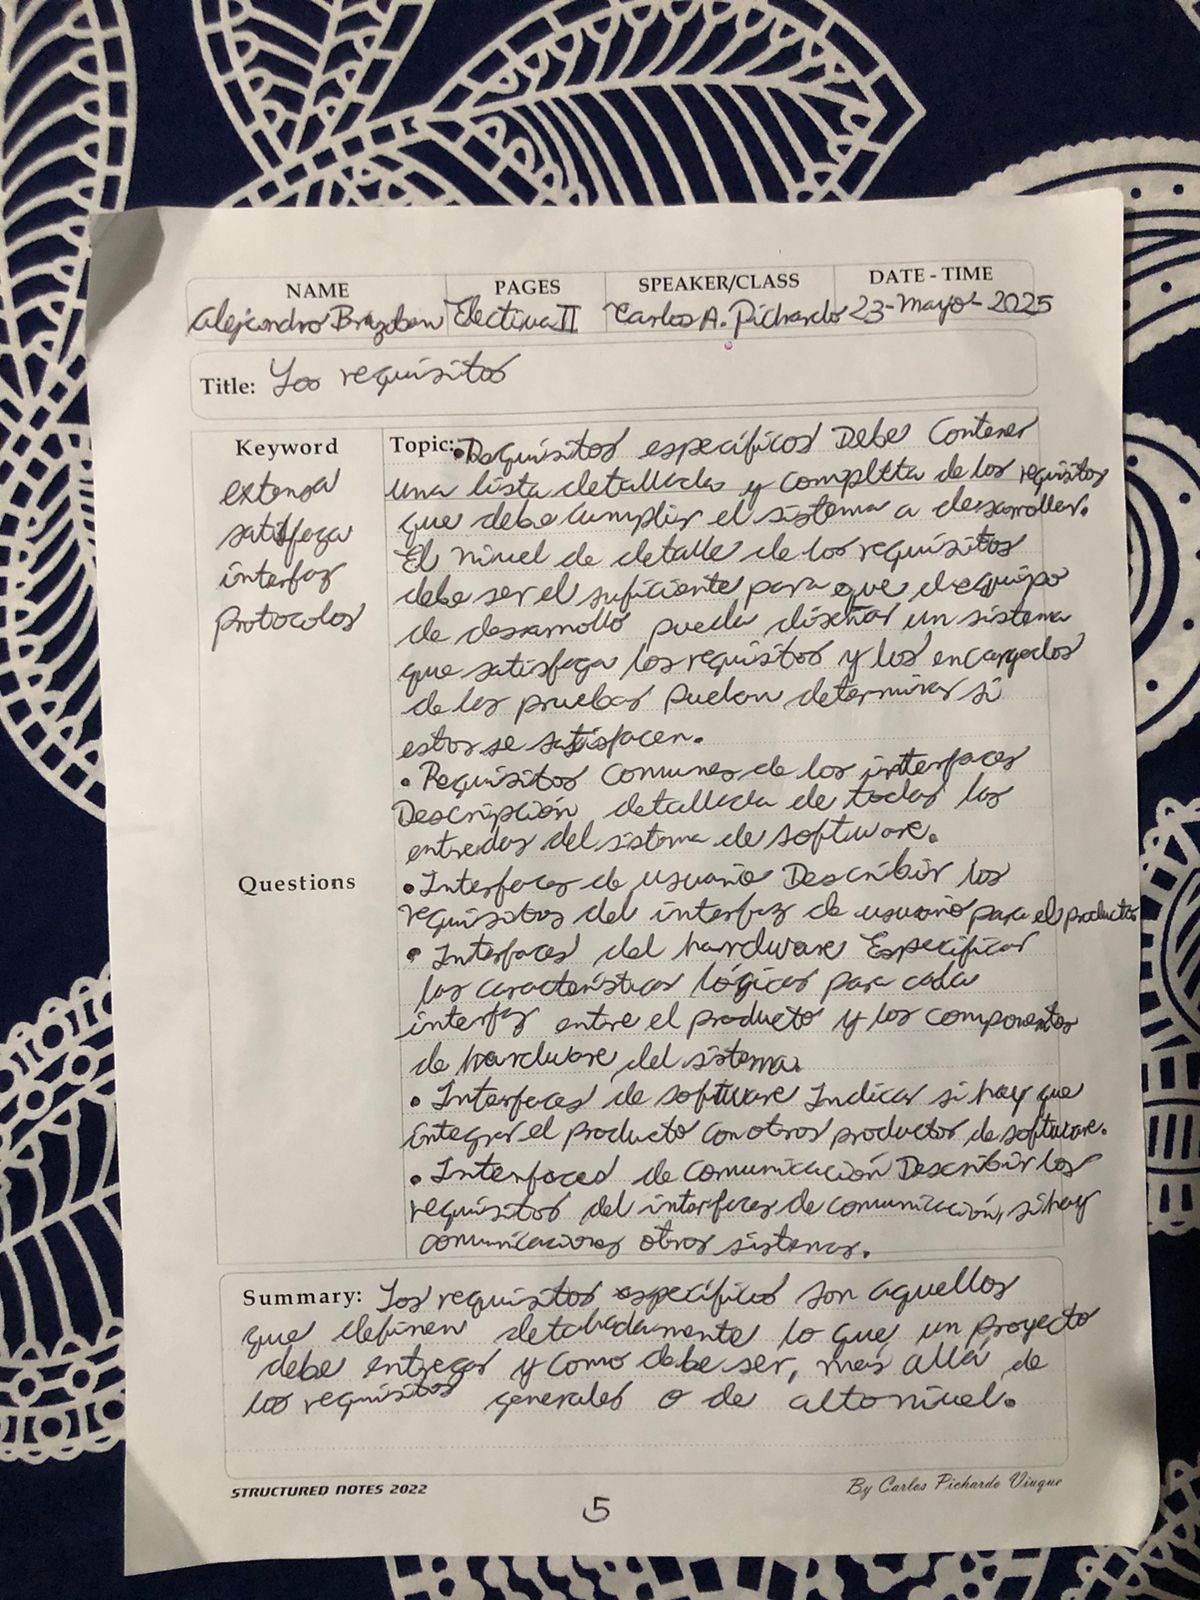 NAME PAGES SPEAKER/CLASS DATE - TIME
Alejandro Brazoban Electiva II Carlos A. Pichardo 23-Mayo-2025
Title: Los requisitos
Keyword
extensa
satisfaga
interfaz
protocolos
Topic: • Requisitos específicos Debe contener
una lista detallada y completa de los requisitos
que debe cumplir el sistema a desarrollar.
El nivel de detalle de los requisitos
debe ser el suficiente para que el equipo
de desarrollo pueda diseñar un sistema
que satisfaga los requisitos y los encargados
de las pruebas puedan determinar si
estos se satisfacen.
• Requisitos comunes de los interfaces
Descripción detallada de todas las
entradas del sistema de software.
Questions
• Interfaces de usuario Describir los
requisitos del interfaz de usuario para el producto
• Interfaces del hardware Especificar
las características lógicas para cada
interfaz entre el producto y los componentes
de hardware del sistema.
• Interfaces de software Indicar si hay que
integrar el producto con otros productos de software.
• Interfaces de comunicación Describir los
requisitos del interfaces de comunicación, si hay
comunicaciones otros sistemas.
Summary: Los requisitos específicos son aquellos
que definen detalladamente lo que un proyecto
debe entregar y como debe ser, más allá de
los requisitos generales o de alto nivel.
STRUCTURED NOTES 2022 By Carlos Pichardo Viuque
5